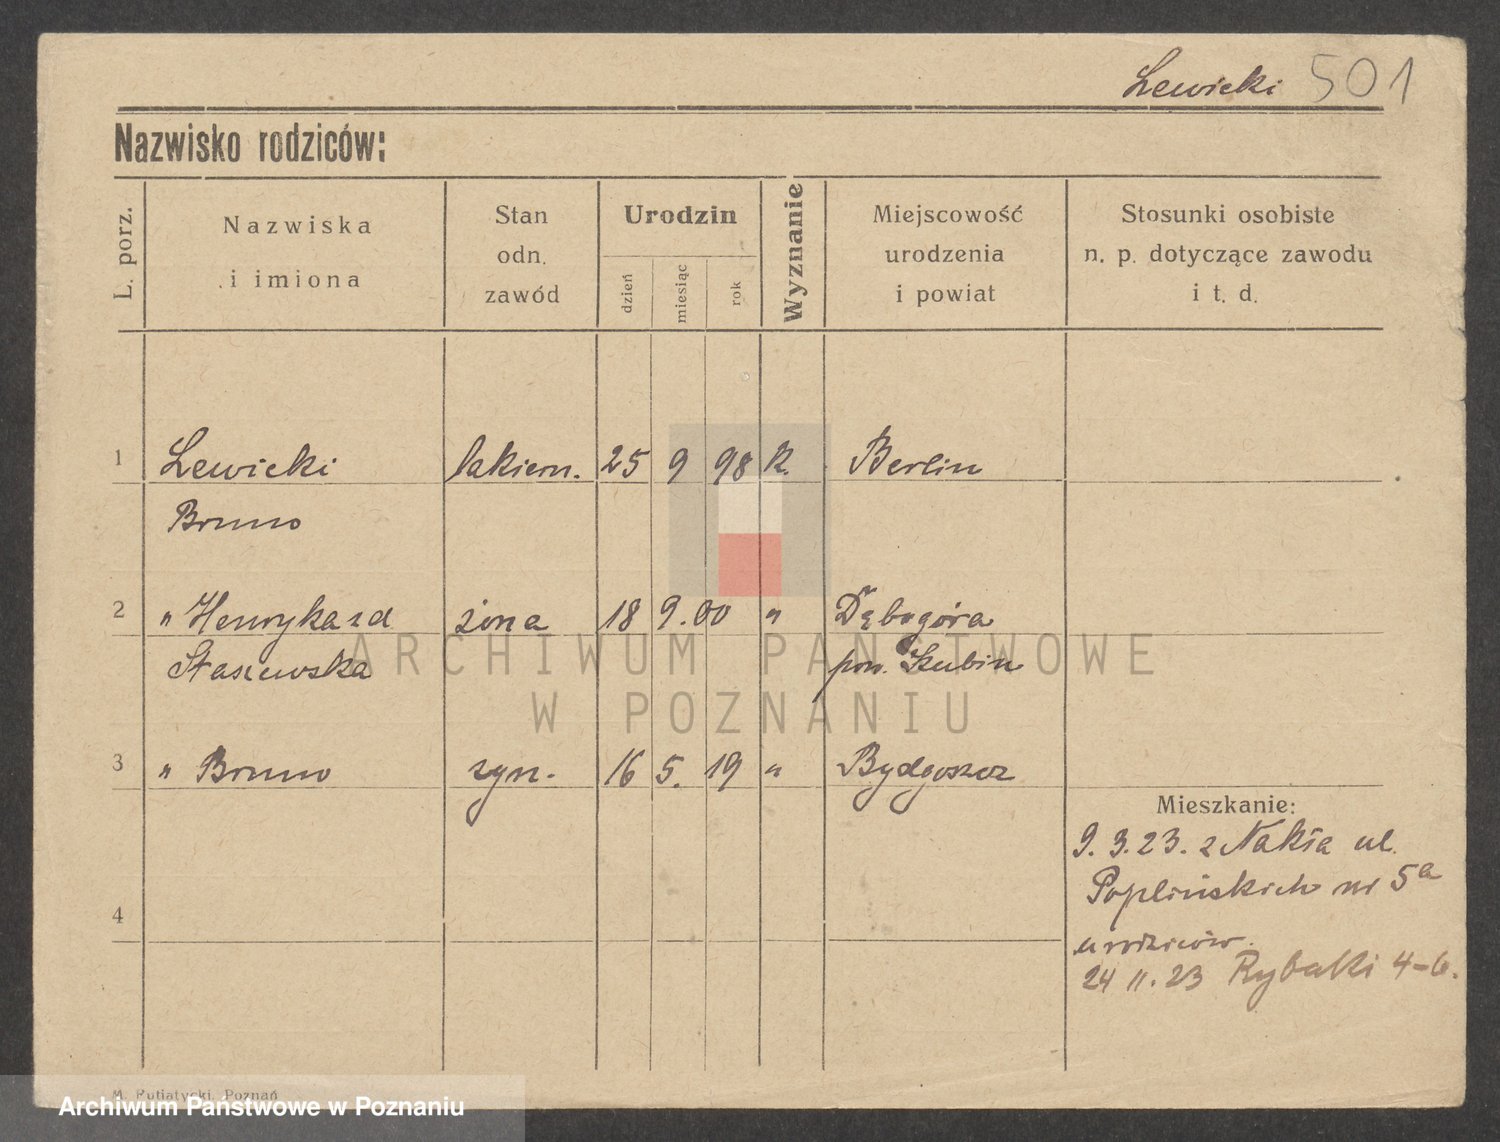 Lewicki 501
Nazwisko rodziców:
L. porz.
Nazwiska
i imiona
Stan
odn.
zawód
Urodzin
dzień
miesiąc
rok
Wyznanie
Miejscowość
urodzenia
i powiat
Stosunki osobiste
n. p. dotyczące zawodu
i t. d.
1 Lewicki lakiern. 25 9 98 k. Berlin
Bruno
2 " Henryka zd żona 18 9. 00 " Dębogóra
Stasiewska pow. Szubin
3 " Bruno syn. 16 5. 19 " Bydgoszcz
Mieszkanie:
9. 3. 23. z Nakła ul.
Poplińskich nr 5a
4
u rodziców.
24 11. 23 Rybaki 4-6.
ARCHIWUM PAŃSTWOWE
W POZNANIU
M. Putiatycki, Poznań
Archiwum Państwowe w Poznaniu